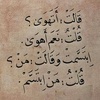 قَالَتْ: أَتَهْوَى؟
قُلْتُ: نَعَمْ أَهْوَى،
اِبْتَسَمَتْ وَقَالَتْ: مَنْ؟
قُلْتُ: مَنْ اِبْتَسَمْ